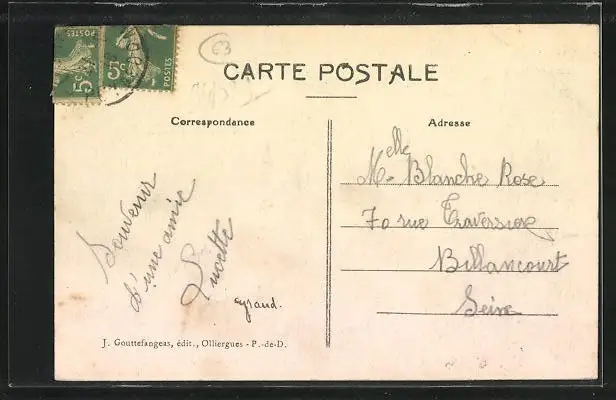 POSTES
5c
5c
POSTES
63
CARTE POSTALE
Correspondance
Souvenir
d'une amie
Lucette
Eyraud.
J. Gouttefangeas, édit., Olliergues - P.-de-D.
Adresse
Melle Blanche Rose
70 rue Traversière
Billancourt
Seine